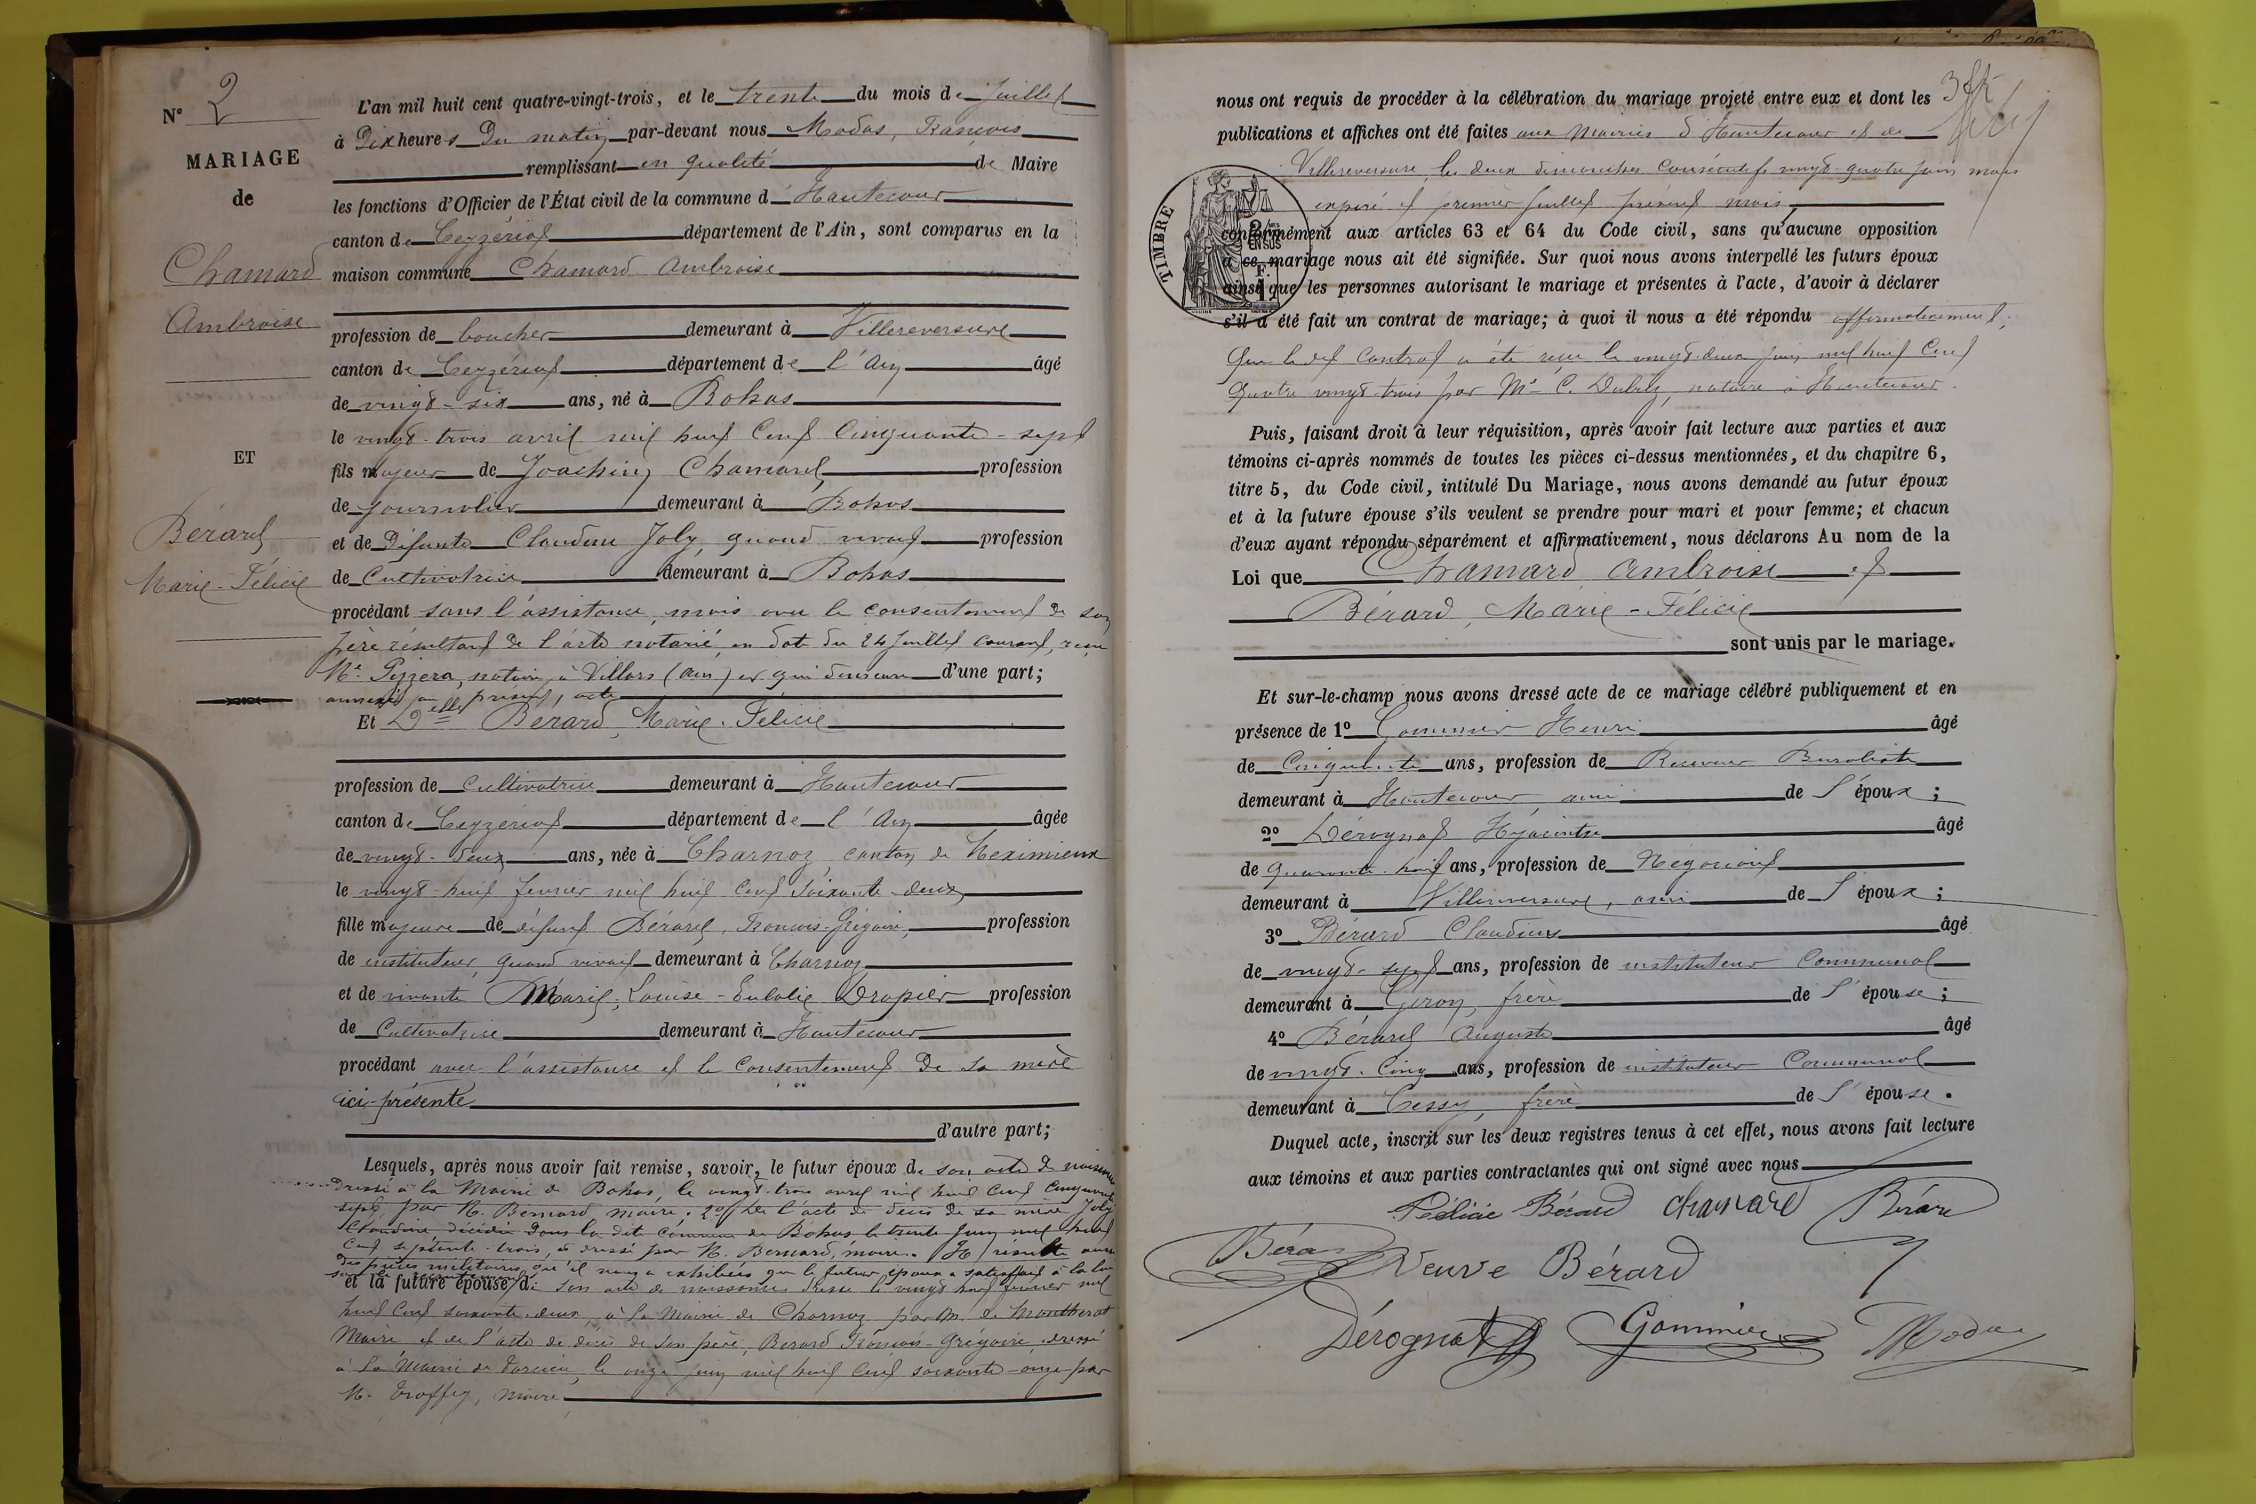 N° 2
MARIAGE
de
Chamard
Ambroise
ET
Bérard
Marie-Félicie
L'an mil huit cent quatre-vingt-trois, et le trente du mois de Juillet
à Dix heures Du matin par-devant nous Modas, François
remplissant en qualité de Maire
les fonctions d'Officier de l'État civil de la commune d'Hautecour
canton de Ceyzériat département de l'Ain, sont comparus en la
maison commune Chamard Ambroise
profession de boucher demeurant à Villereversure
canton de Ceyzériat département de l'Ain âgé
de vingt-six ans, né à Bohas
le vingt-trois avril mil huit cent cinquante-sept
fils majeur de Joachim Chamard profession
de journalier demeurant à Bohas
et de Défunte Claudine Joly, quand vivait profession
de Cultivatrice demeurant à Bohas
procédant sans l'assistance, mais avec le consentement de son
père résultant de l'acte notarié, en date du 24 Juillet courant, reçu
Me Pizzera, notaire à Villars (Ain) et qui demeure d'une part;
annexé au présent acte
Et Delle Bérard, Marie-Félicie
profession de Cultivatrice demeurant à Hautecour
canton de Ceyzériat département de l'Ain âgée
de vingt-deux ans, née à Charnoz, canton de Meximieux
le vingt-huit février mil huit cent soixante-deux
fille majeure de défunt Bérard, François-Grégoire, profession
de instituteur, quand vivait demeurant à Charnoz
et de vivante Marie-Louise-Eulalie Drapier profession
de Cultivatrice demeurant à Hautecour
procédant avec l'assistance et le consentement de sa mère
ici-présente
d'autre part;
Lesquels, après nous avoir fait remise, savoir, le futur époux de son acte de naissance
dressé à la Mairie de Bohas, le vingt-trois avril mil huit cent cinquante
sept par M. Bernard maire; 2° De l'acte de décès de sa mère Joly
Claudine décédée dans la dite commune de Bohas le trente juin mil huit
cent septante-trois, et dressé par M. Bernard, maire. Il résulte aussi
des pièces militaires qu'il nous a exhibées que le futur époux a satisfait à la loi
et la future épouse de son acte de naissance dressé le vingt huit février mil
huit cent soixante-deux, à la Mairie de Charnoz par M. de Montherot
Maire et de l'acte de décès de son père, Bérard François-Grégoire, dressé
à la Mairie de, le onze juin mil huit cent soixante-onze par
M., Maire
nous ont requis de procéder à la célébration du mariage projeté entre eux et dont les
publications et affiches ont été faites aux Mairies d'Hautecour et de
Villereversure, les deux dimanches consécutifs vingt-quatre juin mois
expiré et premier juillet présent mois,
TIMBRE
conformément aux articles 63 et 64 du Code civil, sans qu'aucune opposition
à ce mariage nous ait été signifiée. Sur quoi nous avons interpellé les futurs époux
ainsi que les personnes autorisant le mariage et présentes à l'acte, d'avoir à déclarer
s'il a été fait un contrat de mariage; à quoi il nous a été répondu affirmativement,
Que le dit contrat a été reçu le vingt-deux juin mil huit cent
quatre vingt-trois par Me C., notaire à Hautecour.
Puis, faisant droit à leur réquisition, après avoir fait lecture aux parties et aux
témoins ci-après nommés de toutes les pièces ci-dessus mentionnées, et du chapitre 6,
titre 5, du Code civil, intitulé Du Mariage, nous avons demandé au futur époux
et à la future épouse s'ils veulent se prendre pour mari et pour femme; et chacun
d'eux ayant répondu séparément et affirmativement, nous déclarons Au nom de la
Loi que Chamard Ambroise et
Bérard, Marie-Félicie
sont unis par le mariage.
Et sur-le-champ nous avons dressé acte de ce mariage célébré publiquement et en
présence de 1° Gommier Henri âgé
de Cinquante ans, profession de Receveur Buraliste
demeurant à Hautecour, ami de l'époux;
2° Dérognat Hyacinthe âgé
de quarante-huit ans, profession de Négociant
demeurant à Villereversure, ami de l'époux;
3° Bérard Claudius âgé
de vingt-sept ans, profession de instituteur Communal
demeurant à Giron, frère de l'épouse;
4° Bérard Auguste âgé
de vingt-cinq ans, profession de instituteur Communal
demeurant à Cessy, frère de l'épouse.
Duquel acte, inscrit sur les deux registres tenus à cet effet, nous avons fait lecture
aux témoins et aux parties contractantes qui ont signé avec nous
Félicie Bérard Chamard Bérard
Bérard Veuve Bérard
Dérognat Gommier Modas